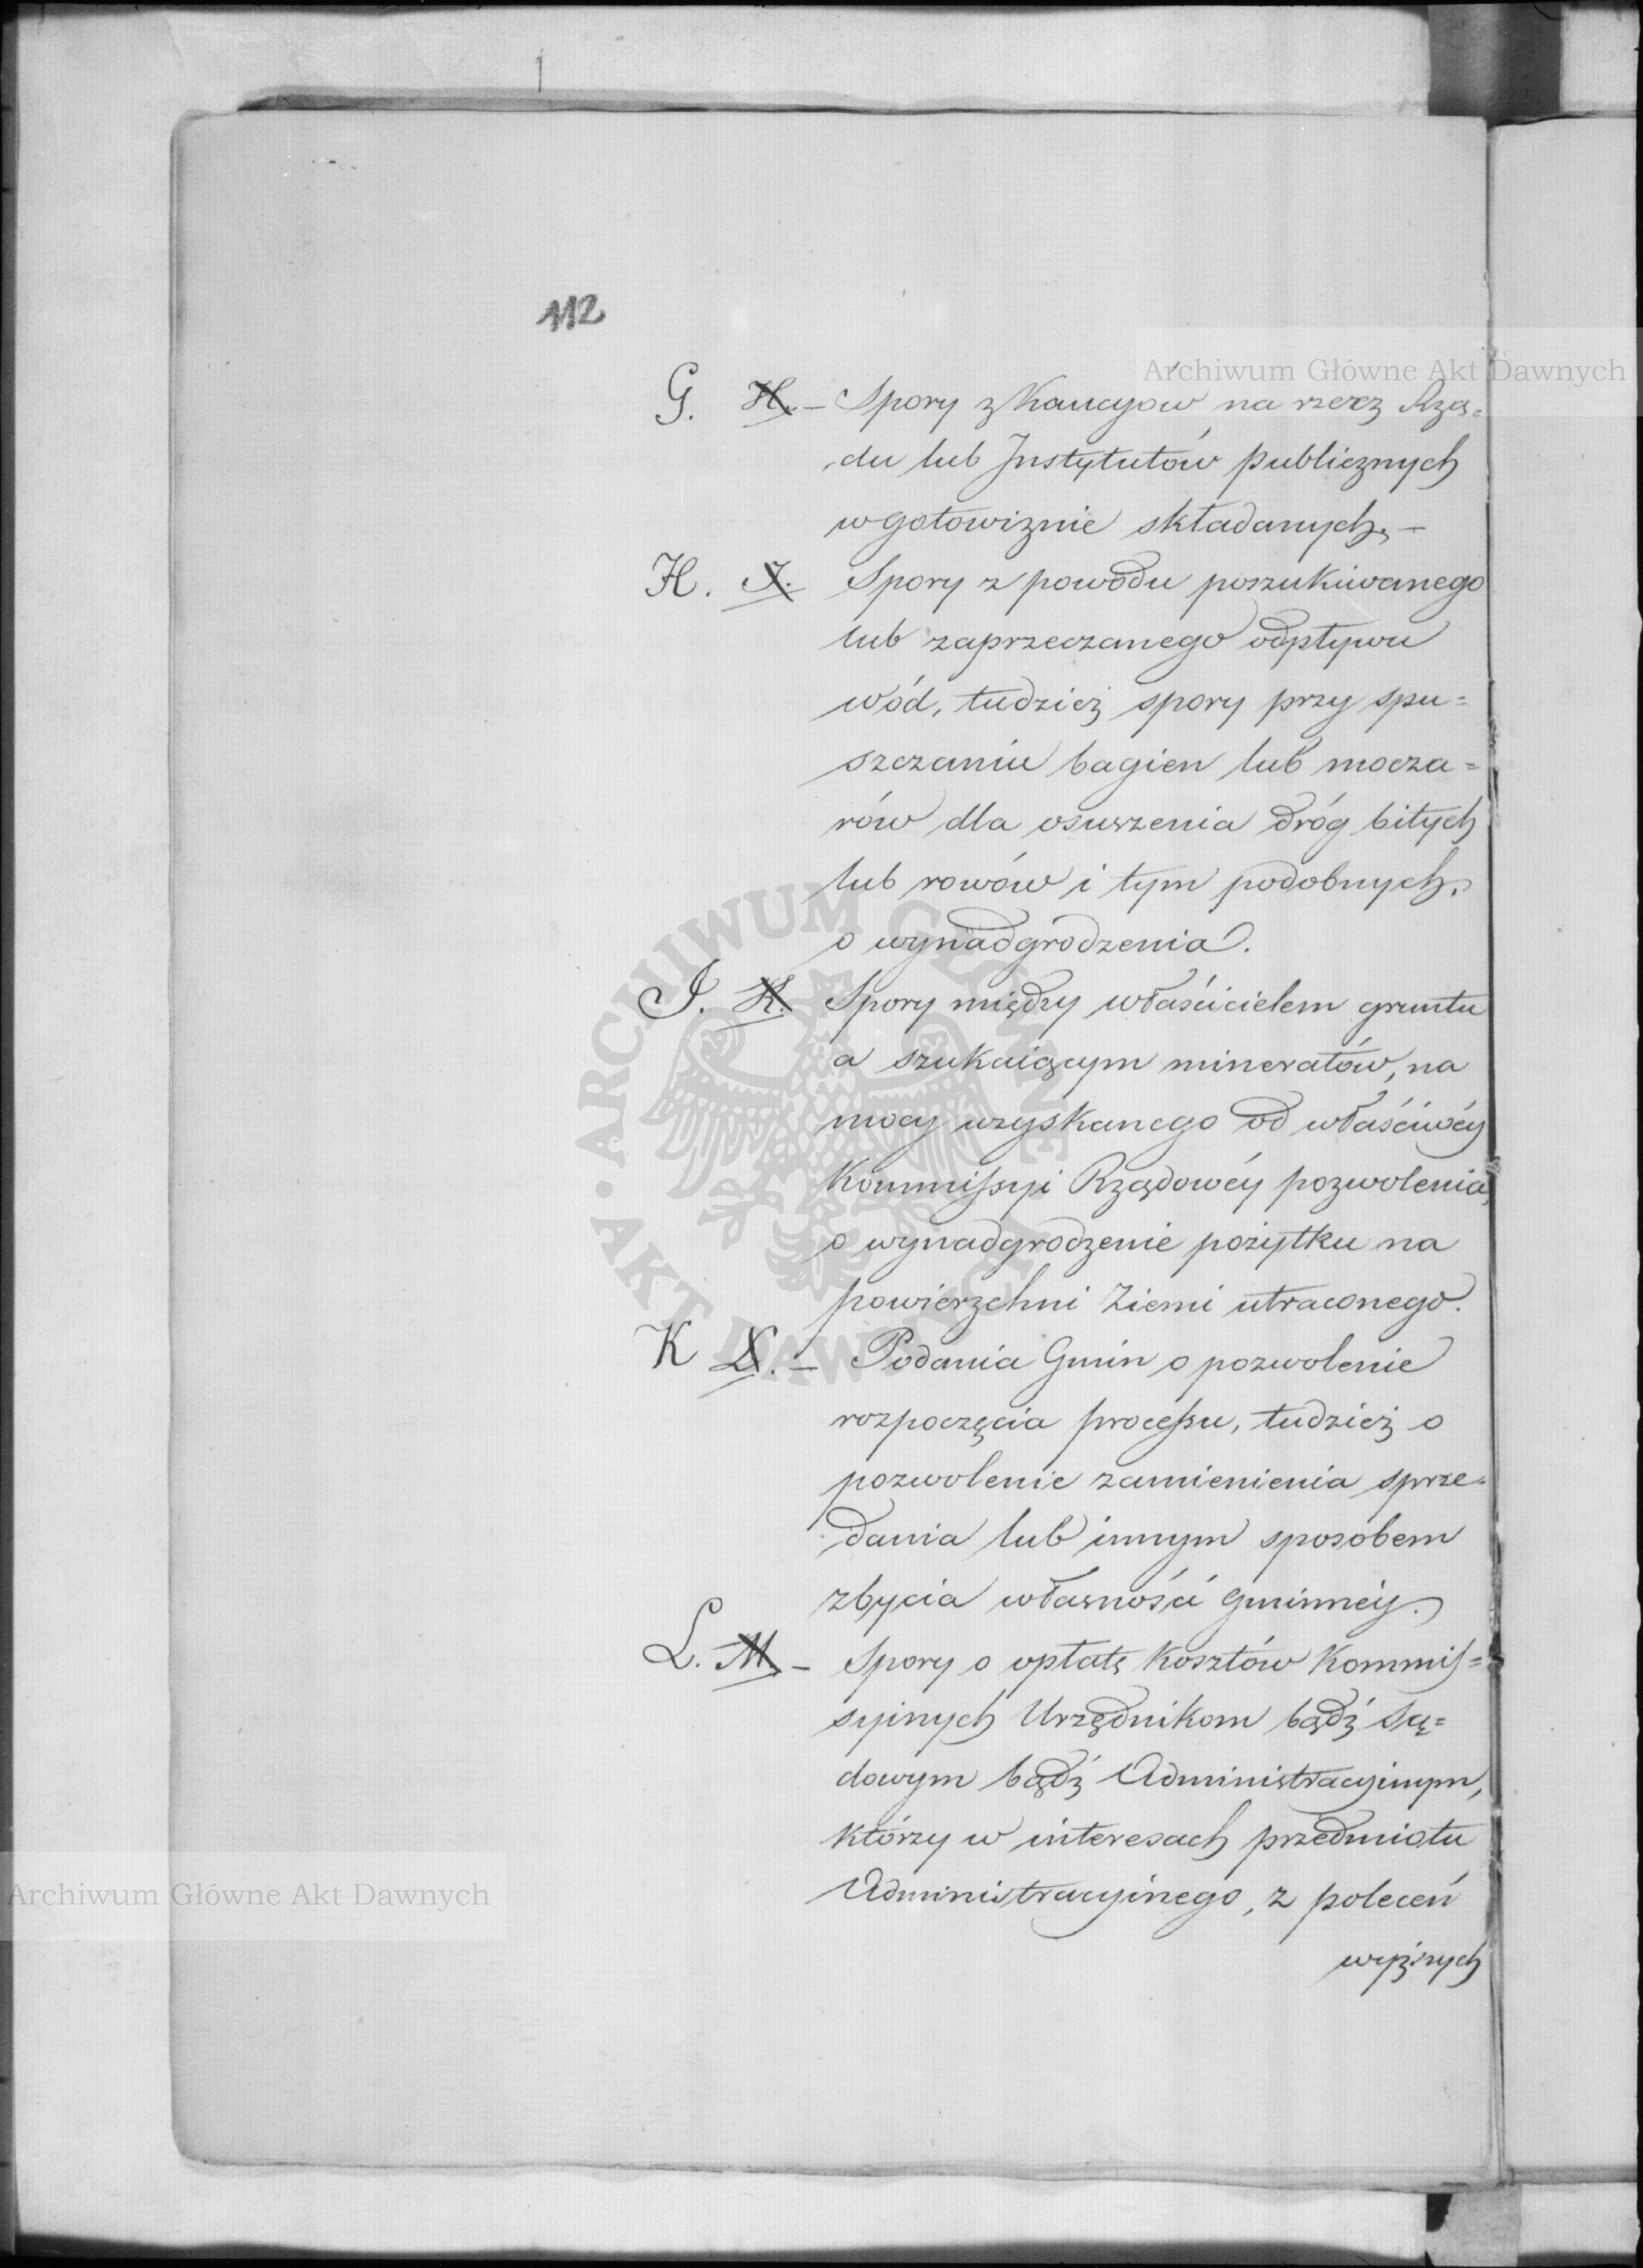 112
Archiwum Główne Akt Dawnych
G. H. – Spory z Kaucyów na rzecz Rzą=
du lub Instytutów publicznych
w gotowiznie składanych, –
H. I. Spory z powodu poszukiwanego
lub zaprzeczanego odpływu
wód, tudzież spory przy spu=
szczaniu bagien lub mocza=
rów dla osuszenia dróg bitych
lub rowów i tym podobnych,
o wynadgrodzenia.
I. K. Spory między właścicielem gruntu
a szukaiącym minerałów, na
mocy uzyskanego od właściwéy
Kommissyi Rządowéy pozwolenia,
o wynadgrodzenie pożytku na
powierzchni Ziemi utraconego.
K L. – Podania Gmin o pozwolenie
rozpoczęcia processu, tudzież o
pozwolenie zamienienia sprze=
dania lub innym sposobem
zbycia własności gminnéy.
L. M. – Spory o opłatę Kosztów Kommis=
syinych Urzędnikom bądź Są=
dowym bądź Administracyinym,
którzy w interesach przedmiotu
Administracyinego, z poleceń
wyższych
ARCHIWUM GŁÓWNE AKT DAWNYCH
Archiwum Główne Akt Dawnych